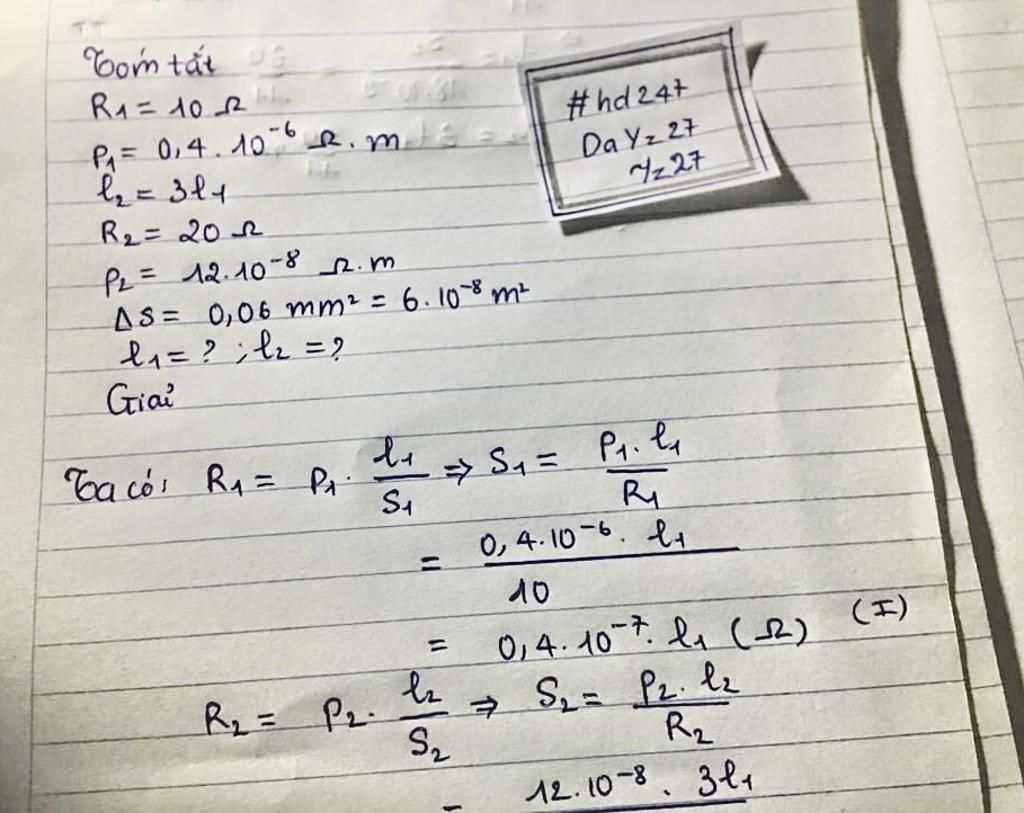 Tóm tắt
R₁ = 10 Ω
ρ₁ = 0,4 . 10⁻⁶ Ω . m
l₂ = 3l₁
R₂ = 20 Ω
ρ₂ = 12.10⁻⁸ Ω.m
ΔS = 0,06 mm² = 6.10⁻⁸ m²
l₁ = ? ; l₂ = ?
Giải
#hd247
DaYz27
Yz27
Ta có: R₁ = ρ₁ . l₁/S₁ ⇒ S₁ = ρ₁ . l₁/R₁
= 0,4.10⁻⁶ . l₁/10
= 0,4.10⁻⁷. l₁ (Ω) (I)
R₂ = ρ₂ . l₂/S₂ ⇒ S₂ = ρ₂ . l₂/R₂
= 12.10⁻⁸ . 3l₁